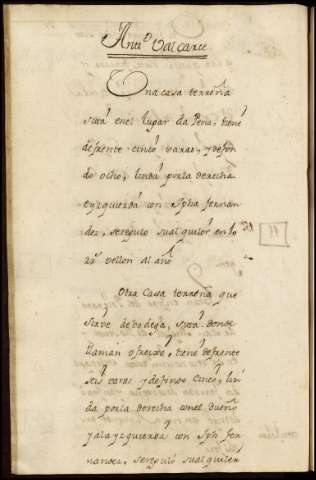 Antt.º Valcarce
Una casa terrena
sitta en el Lugar da Pena, tiene
de frente cinco varas, y de fon
do ocho, linda por la derecha
e yzquierda con Jph fernan
dez, se regulo su alquiler en
rs vellon al año
Otra Casa terrena que
sirve de vodega, sitta donde
llaman tiene de frente
seis varas y de fondo cinco, lin
da por la derecha con el dueño
y a la yzquierda con Jph fer
nandez, se regulo su alquiler
11